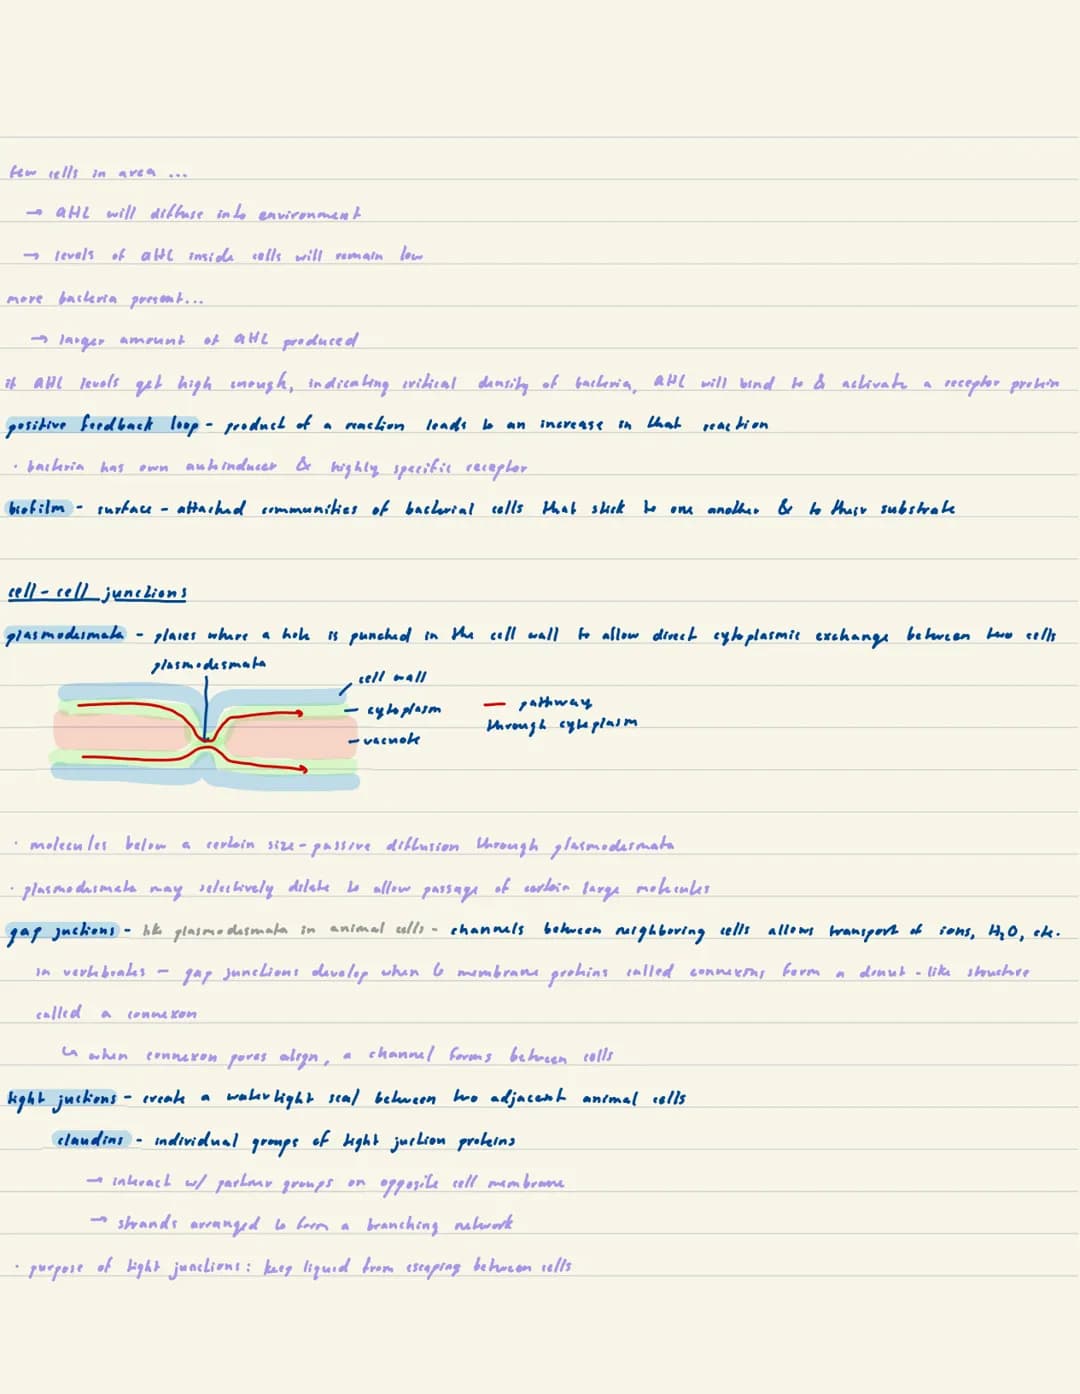 few cells in area ...
→ AHL will diffuse into environment
→ levels of AHL inside cells will remain low
more bacteria present...
→ larger amount of AHL produced
if AHL levels get high enough, indicating critical density of bacteria, AHL will bind to & activate a receptor protein
positive feedback loop - product of a reaction leads to an increase in that reaction
· bacteria has own autoinducer & highly specific receptor
biofilm - surface-attached communities of bacterial cells that stick to one another & to their substrate
cell-cell junctions
plasmodesmata - places where a hole is punched in the cell wall to allow direct cytoplasmic exchange between two cells
plasmodesmata
cell wall
cytoplasm
vacuole
pathway
through cytoplasm
· molecules below a certain size - passive diffusion through plasmodesmata
· plasmodesmata may selectively dilate to allow passage of certain large molecules
gap juctions - like plasmodesmata in animal cells - channels between neighboring cells allows transport of ions, H2O, etc.
in vertebrates - gap junctions develop when 6 membrane proteins called connexins form a donut-like structure
called a connexon
↳ when connexon pores align, a channel forms between cells
tight juctions - create a watertight seal between two adjacent animal cells
claudins - individual groups of tight juction proteins
→ interact w/ partner groups on opposite cell membrane
→ strands arranged to form a branching network
· purpose of tight junctions: keep liquid from escaping between cells